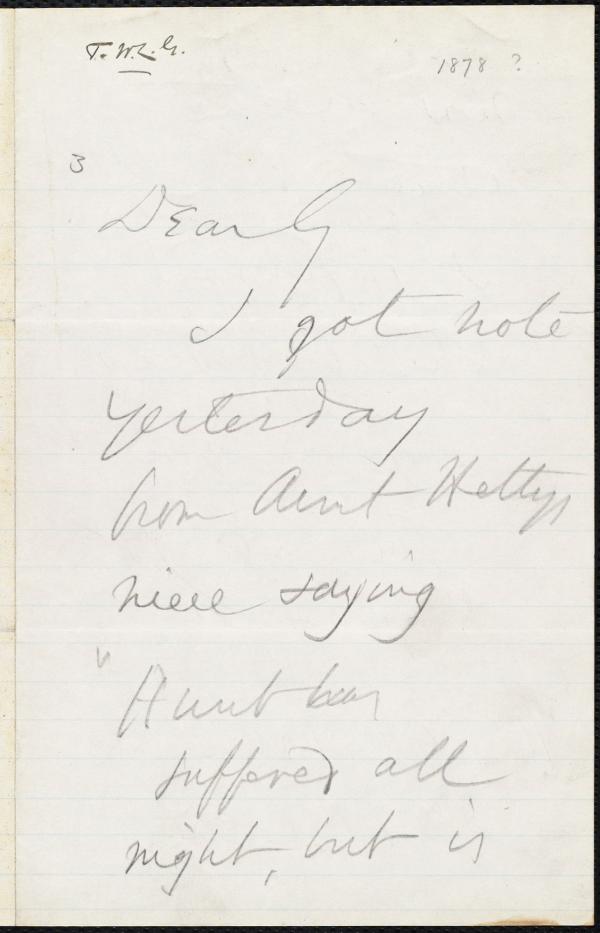 T. W. L. G.
1878 ?
3
Dear G
I got note
yesterday
from Aunt Hettys
niece saying
"Aunt has
suffered all
night, but is